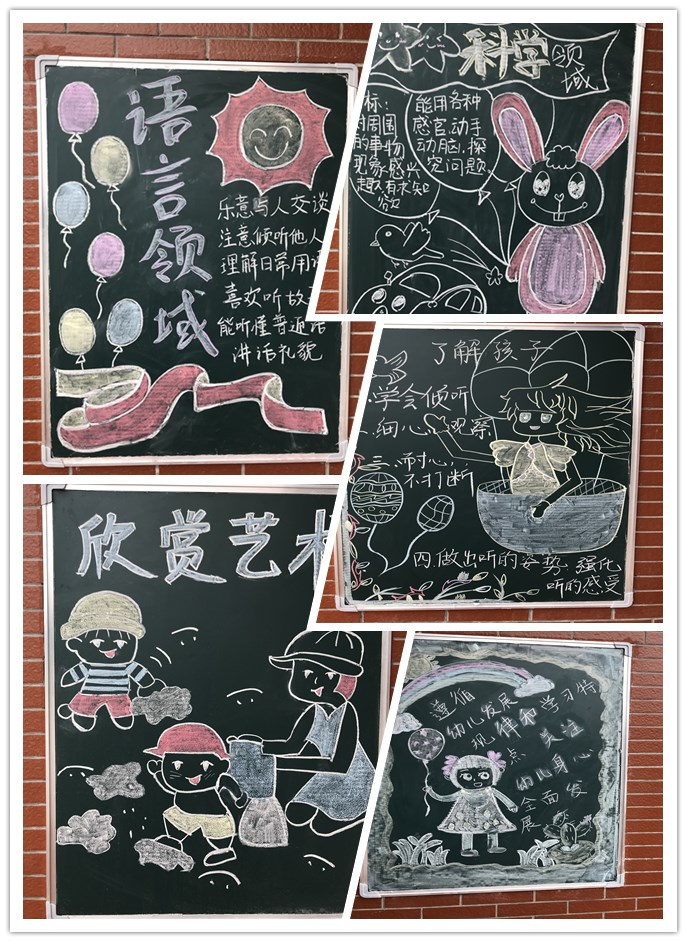 语言领域
乐意与人交谈
注意倾听他人
理解日常用
喜欢听故
能听懂普通话
讲话礼貌
科学领域
标:
周围
的事物
现象感兴
趣有求知
欲
能用各种
感官动手
动脑,探
究问题.
了解孩子
学会倾听
细心观察
三、耐心,
不打断
四.做出听的姿势 强化
听的感受
欣赏艺术
遵循
幼儿发展
规律和学习特
点 关注
幼儿身心
全面发
展